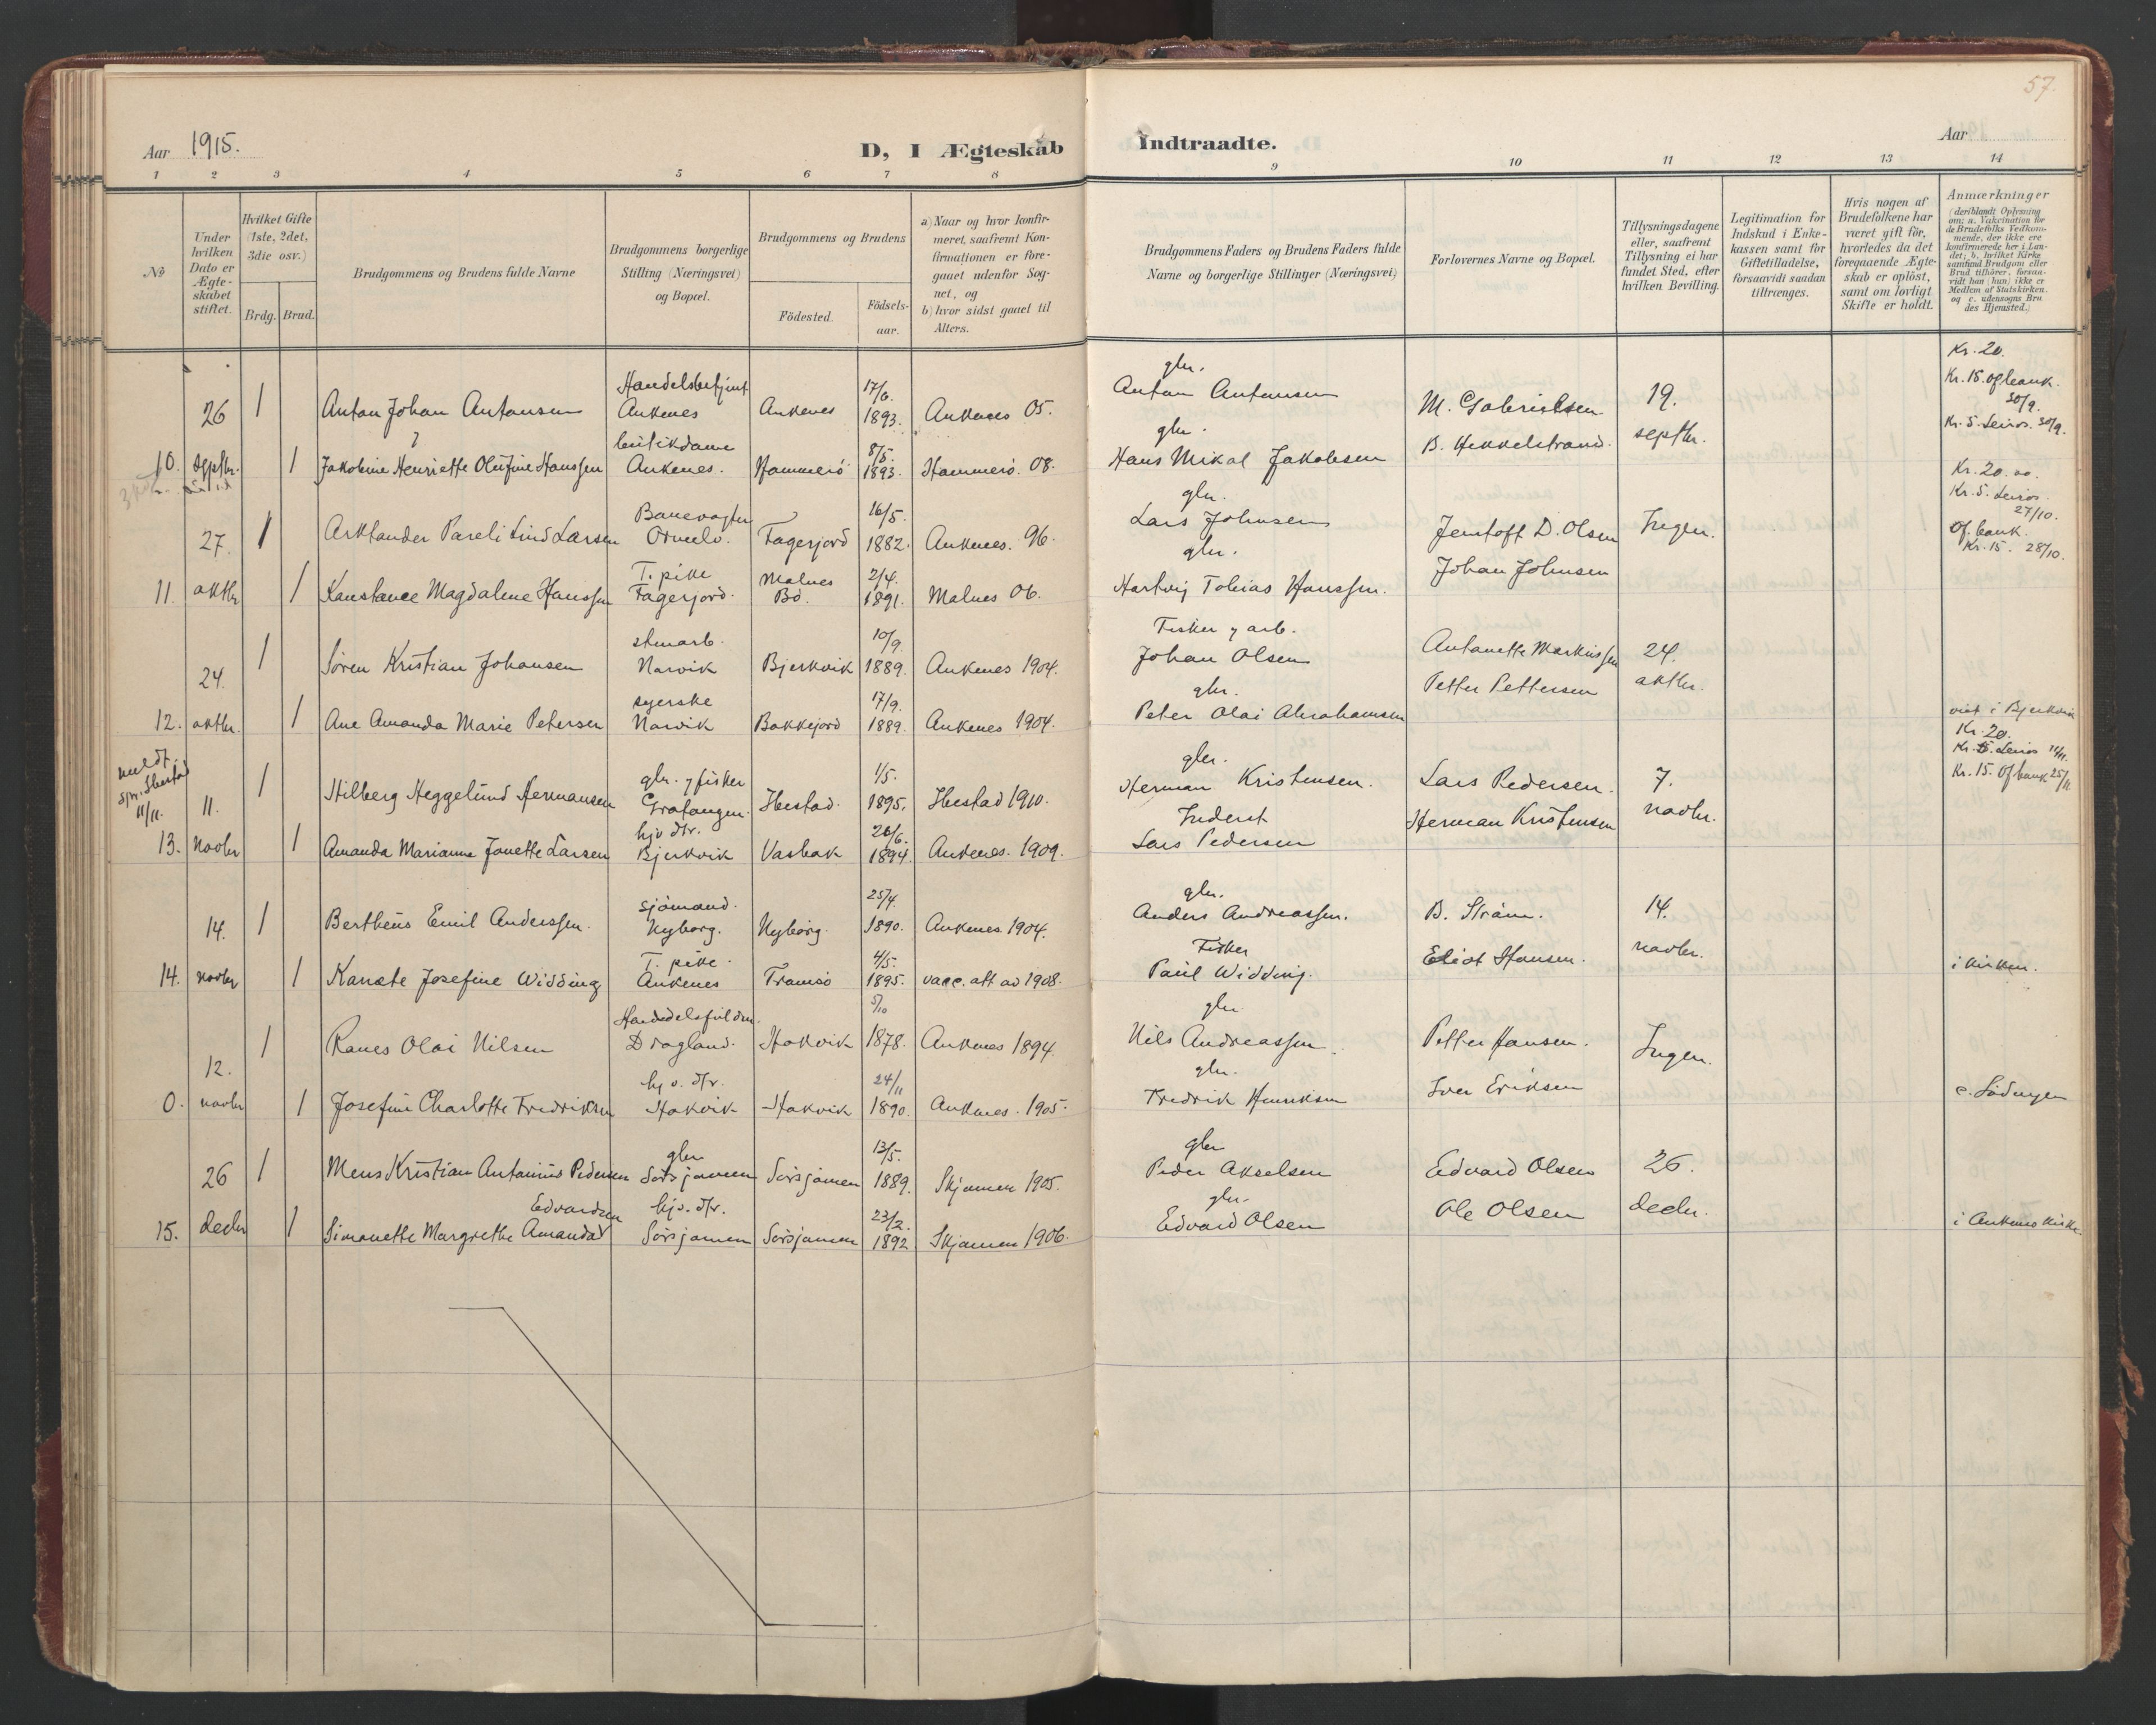 57.
Aar 1915.
D, I Ægteskab Indtraadte.
Aar
1 2 3 4 5 6 7 8 9 10 11 12 13 14
No
Under hvilken Dato er Ægteskabet stiftet.
Hvilket Gifte (1ste, 2det, 3die osv.)
Brdg. Brud.
Brudgommens og Brudens fulde Navne
Brudgommens borgerlige Stilling (Næringsvei) og Bopæl.
Brudgommens og Brudens
Födested.
Födsels-aar.
a) Naar og hvor konfirmeret, saafremt Konfirmationen er foregaaet udenfor Sognet, og
b) hvor sidst gaaet til Alters.
Brudgommens Faders og Brudens Faders fulde Navne og borgerlige Stillinger (Næringsvei)
Forlovernes Navne og Bopæl.
Tillysningsdagene eller, saafremt Tillysning ei har fundet Sted, efter hvilken Bevilling.
Legitimation for Indskud i Enkekassen samt for Giftetilladelse, forsaavidt saadan tiltrænges.
Hvis nogen af Brudefolkene har været gift för, hvorledes da det foregaaende Ægteskab er oplöst, samt om lovligt Skifte er holdt.
Anmærkninger
(deriblandt Oplysning om: a. Vakcination for de Brudefolks Vedkommende, der ikke ere konfirmerede her i Landet; b. hvilket Kirkesamfund Brudgom eller Brud tilhörer, forsaavidt han (hun) ikke er Medlem af Statskirken, og c. udensogns Brudes Hjemsted.)
26 1 Anton Johan Antonsen Handelsbetjent Ankenes Ankenes 17/6. 1893. Ankenes 05. gbr. Anton Antonsen M. Gabrielsen 19. Kr. 20.
Kr. 15. of bank. 30/9.
Kr. 5. Leiros. 30/9.
10. septbr. 1 Jakobine Henriette Olufine Hanssen butikdame Ankenes. Hammerö 8/5. 1893. Hammerö. 08. gbr. Hans Mikal Jakobsen B. Hekkelstrand. septbr.
27. 1 Arktander Pareli Lind Larsen Banevogter Ornelv. Fagerjord 16/5. 1882. Ankenes. 96. gbr. Lars Johnsen Jentoft D. Olsen Ingen. Kr. 20.00
Kr. 5. Leiros. 27/10.
Of. bank. Kr. 15. 28/10.
11. oktbr 1 Konstance Magdalene Hanssen T. pike Fagerjord. Malnes Bö. 2/4. 1891. Malnes 06. gbr. Hartvig Tobias Hanssen. Johan Johnsen
24. 1 Sören Kristian Johansen stenarb. Narvik Bjerkvik 10/9. 1889. Ankenes 1904. Fisker y arb. Johan Olsen Antonette Markussen 24.
12. oktbr. 1 Ane Amanda Marie Petersen syerske Narvik Bakkejord 17/9. 1889. Ankenes 1904. gbr. Peter Olai Abrahamsen Petter Pettersen oktbr. viet i Bjerkvik
meldt. spr. Ibestad 11/11.
11. 1 Hilberg Heggelund Hermansen gbr. y fisker Gratangen. Ibestad. 1/5. 1895. Ibestad 1910. gbr. Herman Kristensen. Lars Pedersen. 7. Kr. 20.
Kr. 5. Leiros 11/11.
Kr. 15. Of bank 25/11
13. Novbr 1 Amanda Marianne Janette Larsen hjv. dtr. Bjerkvik Vasbak 20/6. 1894. Ankenes. 1909. Inderst Lars Pedersen Herman Kristensen novbr.
14. 1 Bertheus Emil Anderssen. sjömand. Nyborg. Nyborg. 25/4. 1890. Ankenes. 1904. gbr. Anders Andreassen. B. Ström. 14.
14. Novbr 1 Kanæte Josefine Widding T. pike. Ankenes Tromsö 4/5. 1895. vacc. att av 1908. Fisker Paul Widding. Eliot Hansen. novbr. i kirken.
12. 1 Ranes Olai Nilsen Dragland. Hakvik 5/10 1878. Ankenes 1894. gbr. Nils Andreassen Petter Hansen. Ingen.
0. novbr 1 Josefine Charlotte Fredriksen hj v. dtr. Hakvik Hakvik 24/11 1890. Ankenes. 1905. gbr. Fredrik Henriksen Iver Eriksen c. Lödingen
26 1 Mens Kristian Antonius Pedersen gbr Sörsjomen Sörsjomen 13/5. 1889. Skjomen 1905. gbr Peder Akselsen Edvard Olsen 26.
15. decbr 1 Simonette Margrethe Amanda Edvardsen hjv. dtr. Sörsjomen Sörsjomen 23/2. 1892 Skjomen 1906. gbr. Edvard Olsen Ole Olsen decbr. i Ankenes kirke.